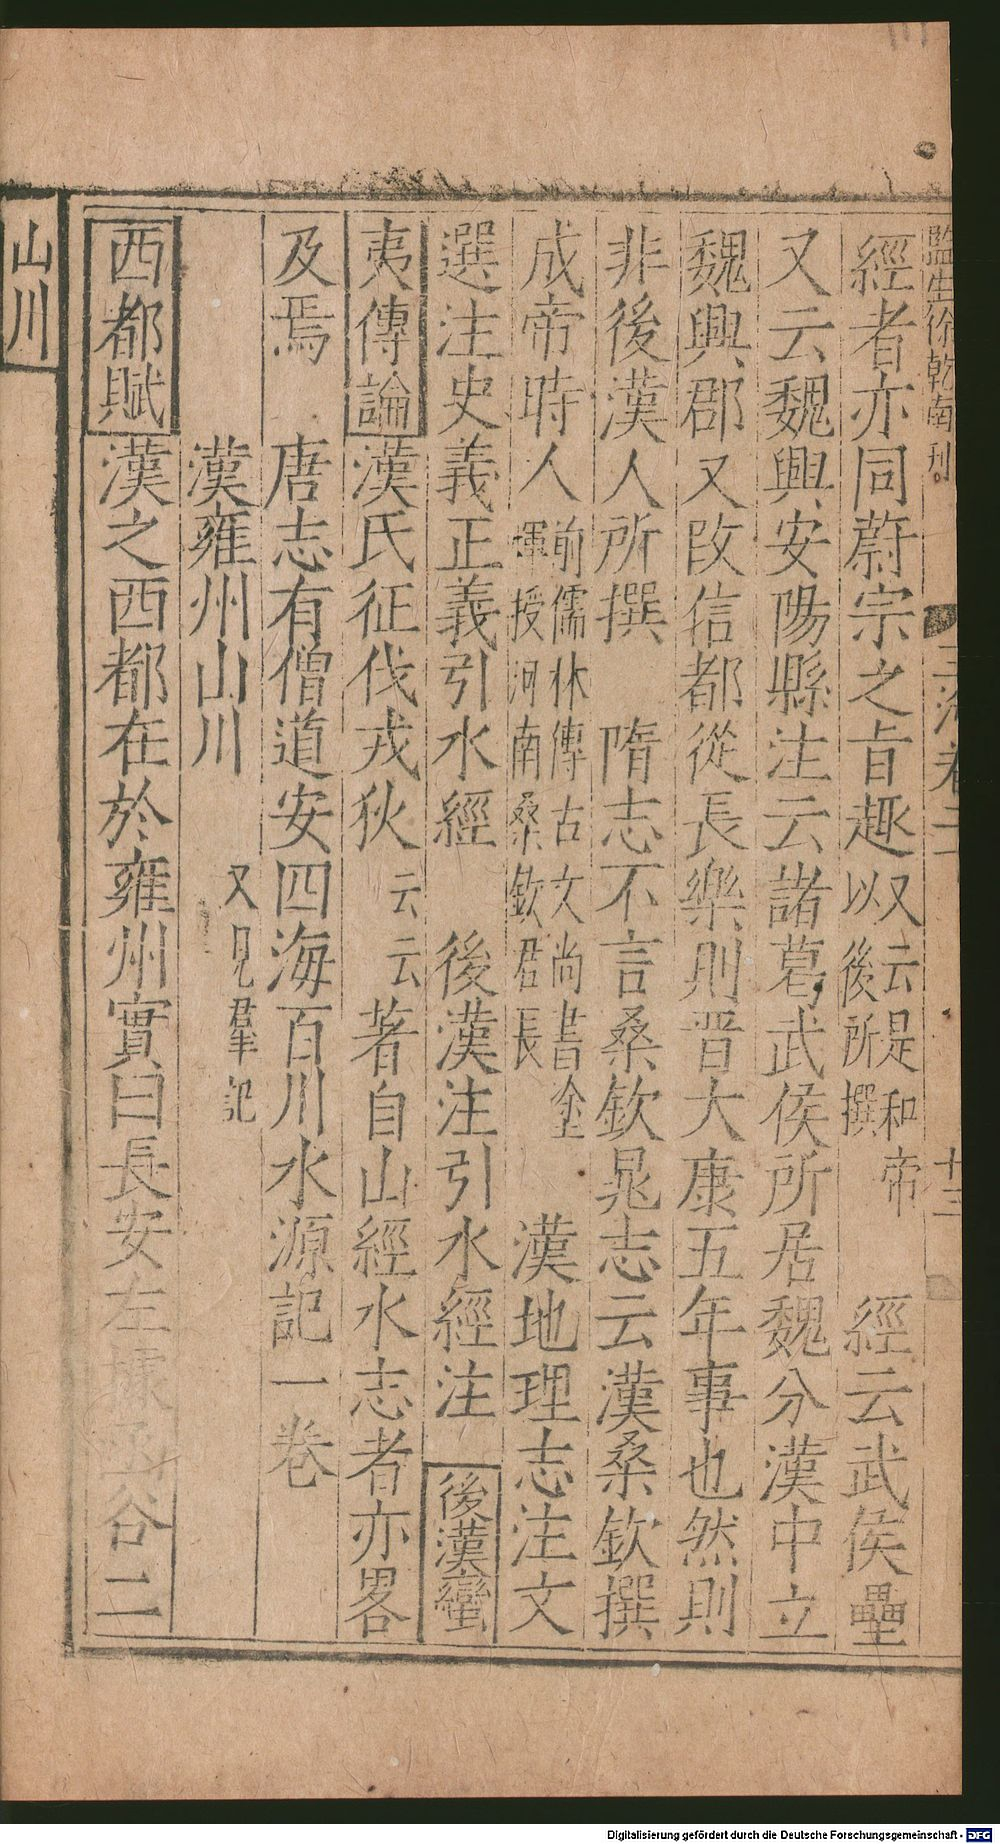 監生徐乾南刊
玉海卷二 十三
經者亦同蔚宗之旨趣又云是和帝以後所撰 經云武侯壘
又云魏興安陽縣注云諸葛武侯所居魏分漢中立
魏興郡又改信都從長樂則晋大康五年事也然則
非後漢人所撰 隋志不言桑欽晁志云漢桑欽撰
成帝時人前儒林傳古文尚書塗惲授河南桑欽君長 漢地理志注文
選注史義正義引水經 後漢注引水經注 後漢蠻
夷傳論漢氏征伐戎狄云云著自山經水志者亦畧
及焉 唐志有僧道安四海百川水源記一卷
漢雍州山川 又見羣記
西都賦漢之西都在於雍州實曰長安左據函谷二
山川
Digitalisierung gefördert durch die Deutsche Forschungsgemeinschaft - DFG